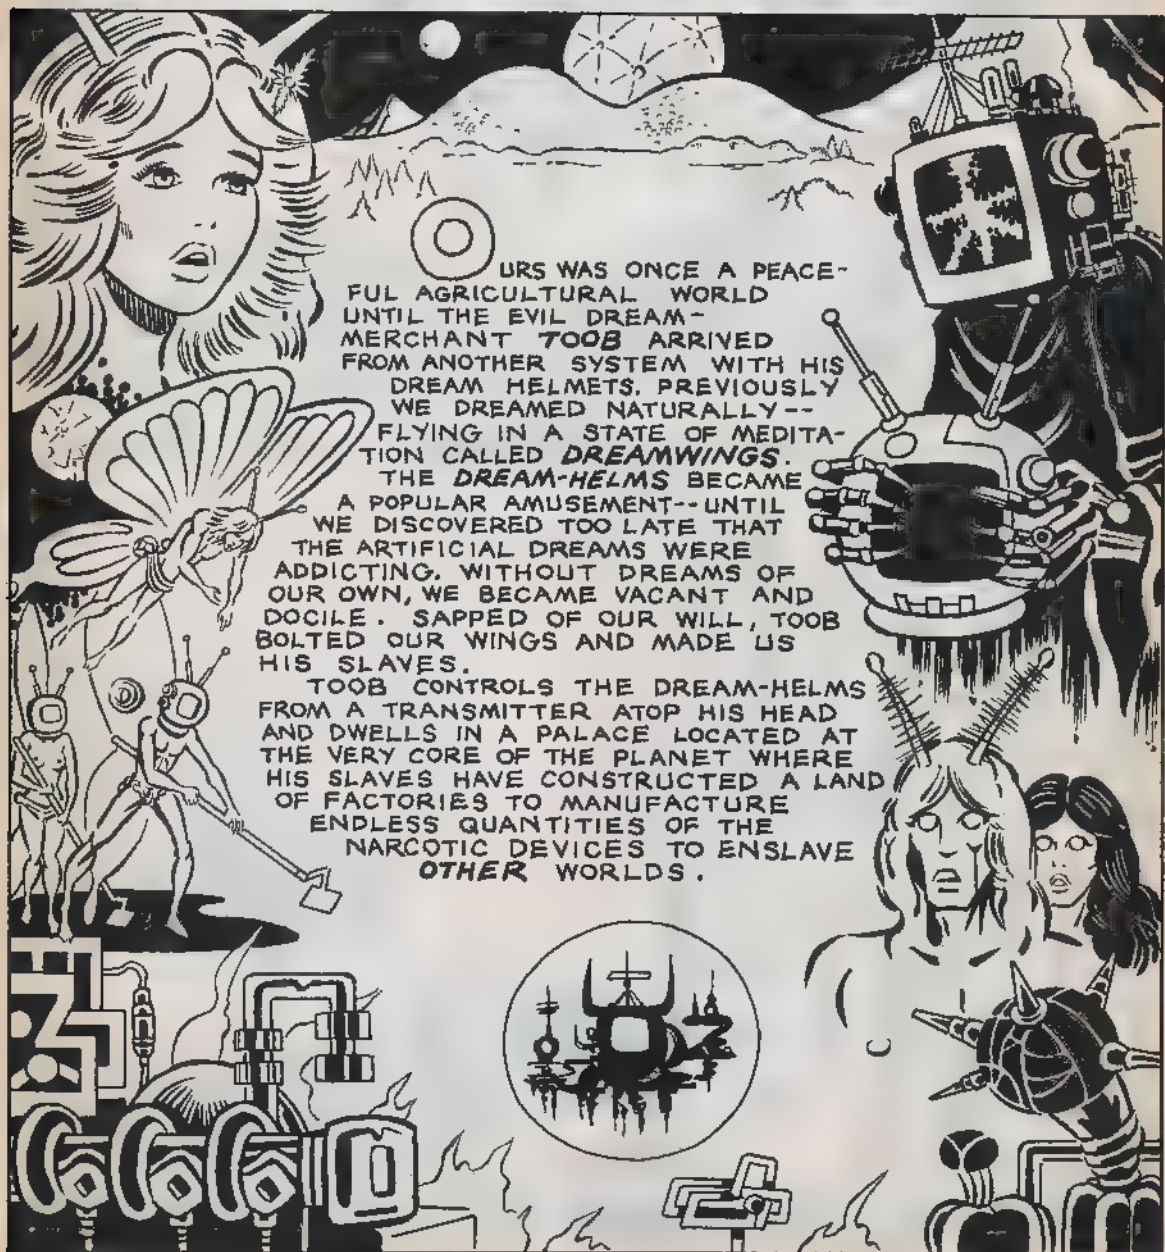 OURS WAS ONCE A PEACE-
FUL AGRICULTURAL WORLD
UNTIL THE EVIL DREAM-
MERCHANT TOOB ARRIVED
FROM ANOTHER SYSTEM WITH HIS
DREAM HELMETS. PREVIOUSLY
WE DREAMED NATURALLY--
FLYING IN A STATE OF MEDITA-
TION CALLED DREAMWINGS.
THE DREAM-HELMS BECAME
A POPULAR AMUSEMENT--UNTIL
WE DISCOVERED TOO LATE THAT
THE ARTIFICIAL DREAMS WERE
ADDICTING. WITHOUT DREAMS OF
OUR OWN, WE BECAME VACANT AND
DOCILE. SAPPED OF OUR WILL, TOOB
BOLTED OUR WINGS AND MADE US
HIS SLAVES.
TOOB CONTROLS THE DREAM-HELMS
FROM A TRANSMITTER ATOP HIS HEAD
AND DWELLS IN A PALACE LOCATED AT
THE VERY CORE OF THE PLANET WHERE
HIS SLAVES HAVE CONSTRUCTED A LAND
OF FACTORIES TO MANUFACTURE
ENDLESS QUANTITIES OF THE
NARCOTIC DEVICES TO ENSLAVE
OTHER WORLDS.